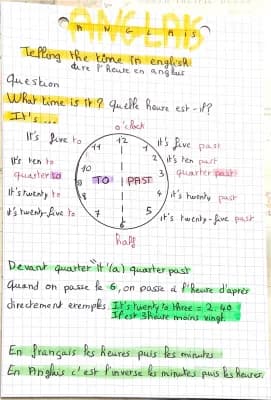 ANGLAIS
Telling the time in english
dire l'heure en anglais
Question
What time is it? quelle heure est-il?
It's...
o'clock
It's five to
It's five past
It's ten to
It's ten past
quarter to
quarter past
TO PAST
It's twenty to
it's twenty past
it's twenty-five to
it's twenty-five past
12
1
2
3
4
5
6
7
8
9
10
11
half
Devant quarter "it'(a) quarter past
Quand on passe le 6, on passe à l'heure d'après
directement exemples. It's twenty to three = 2:40
Il est 3 heure moins vingt.
En français les heures puis les minutes
En Anglais c'est l'inverse les minutes puis les heures.